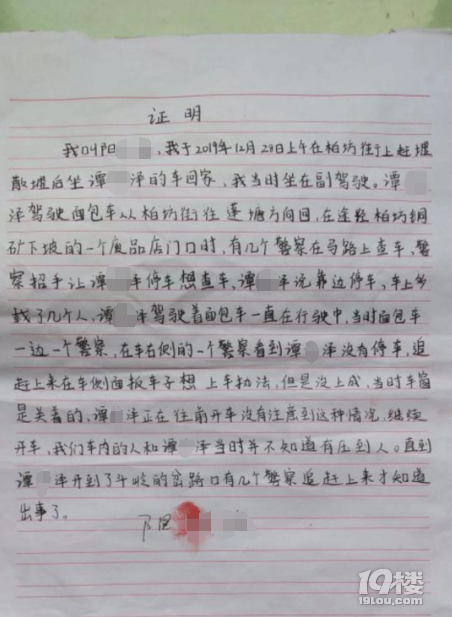 证明
我叫阳 ，我于2019年12月29日上午在柏坊街上赶堰
散堰后坐谭 泽的车回家，我当时坐在副驾驶。谭
泽驾驶面包车从柏坊街往蓬塘方向回，在途经柏坊铜
矿下坡的一个废品店门口时，有几个警察在马路上查车，警
察招手让谭 泽停车想查车，谭 泽说靠边停车，车上
我了几个人，谭 泽驾驶着面包车一直在行驶中，当时面包车
一边一个警察，在车右侧的一个警察看到谭 泽没有停车，追
赶上来在车侧面扳车子想上车执法，但是没上成，当时车窗
是关着的，谭 泽正在往前开车没有注意到这种情况，继续
开车，我们车内的人和谭 泽当时并不知道有压到人。直到
谭 泽开到了斗岐的岔路口有几个警察追赶上来才知道
出事了。
阳
19楼
19lou.com